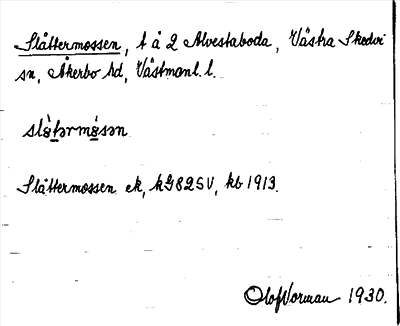 Slåttermossen, t å 2 Alvestaboda, Västra Skedvi
sn, Åkerbo hd, Västmanl. l.
slò̀tərmò̀sən
Slåttermossen ek, kG82SV, kb 1913.
Olof Norman 1930.